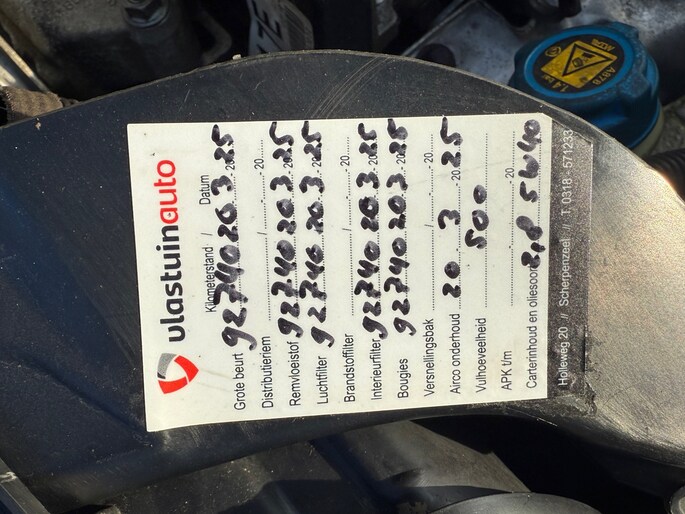 vlastuinauto
Kilometerstand / Datum
Grote beurt 92740 20 3 2025
Distributieriem / - 20
Remvloeistof 92740 20 3 2025
Luchtfilter 92740 20 3 2025
Brandstoffilter / - 20
Interieurfilter 92740 20 3 2025
Bougies 92740 20 3 2025
Versnellingsbak / - 20
Airco onderhoud 20 3 2025
Vulhoeveelheid 500
APK t/m - 20
Carterinhoud en oliesoort 2,8 5W40
Holleweg 20 // Scherpenzeel // T. 0318 - 571233
1.4 bar